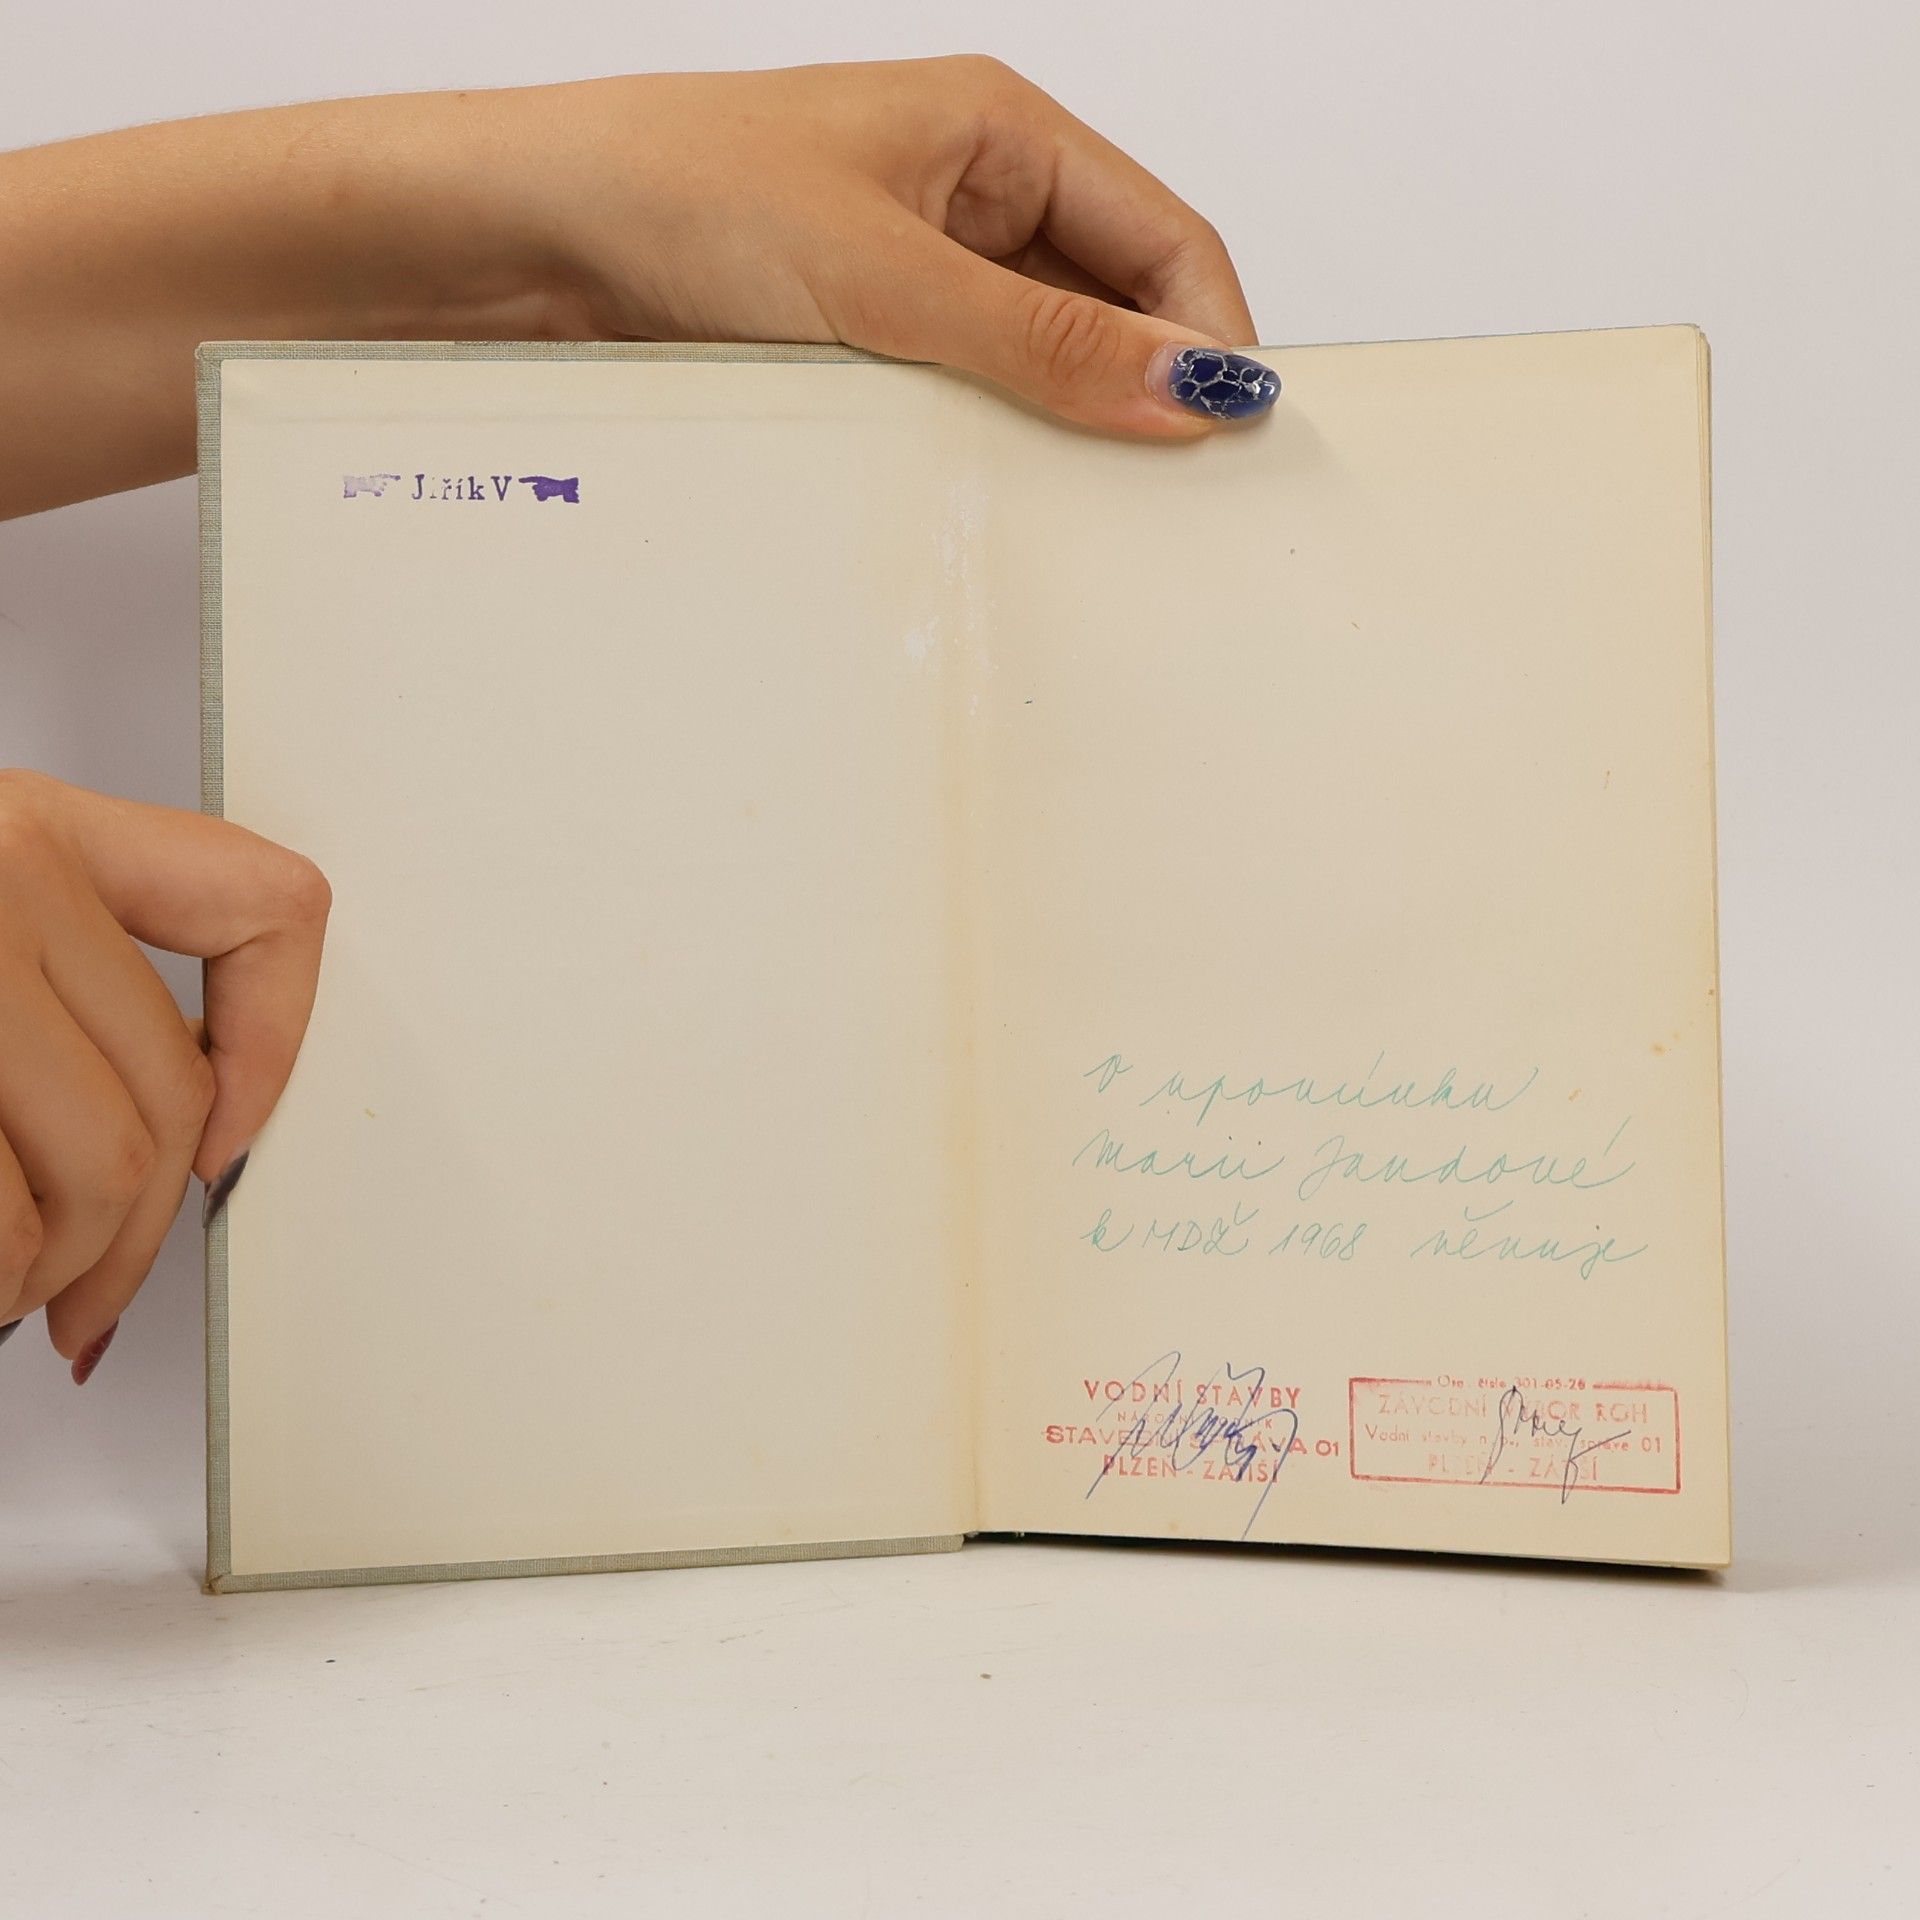 Jiřík V
v upomínku
Marii Jandové
k MDŽ 1968 věnuje
VODNÍ STAVBY
NÁRODNÍ PODNIK
STAVEBNÍ SPRÁVA 01
PLZEŇ - ZÁTIŠÍ
Org. číslo 301-05-26
ZÁVODNÍ VÝBOR ROH
Vodní stavby n. p., stav. správa 01
PLZEŇ - ZÁTIŠÍ